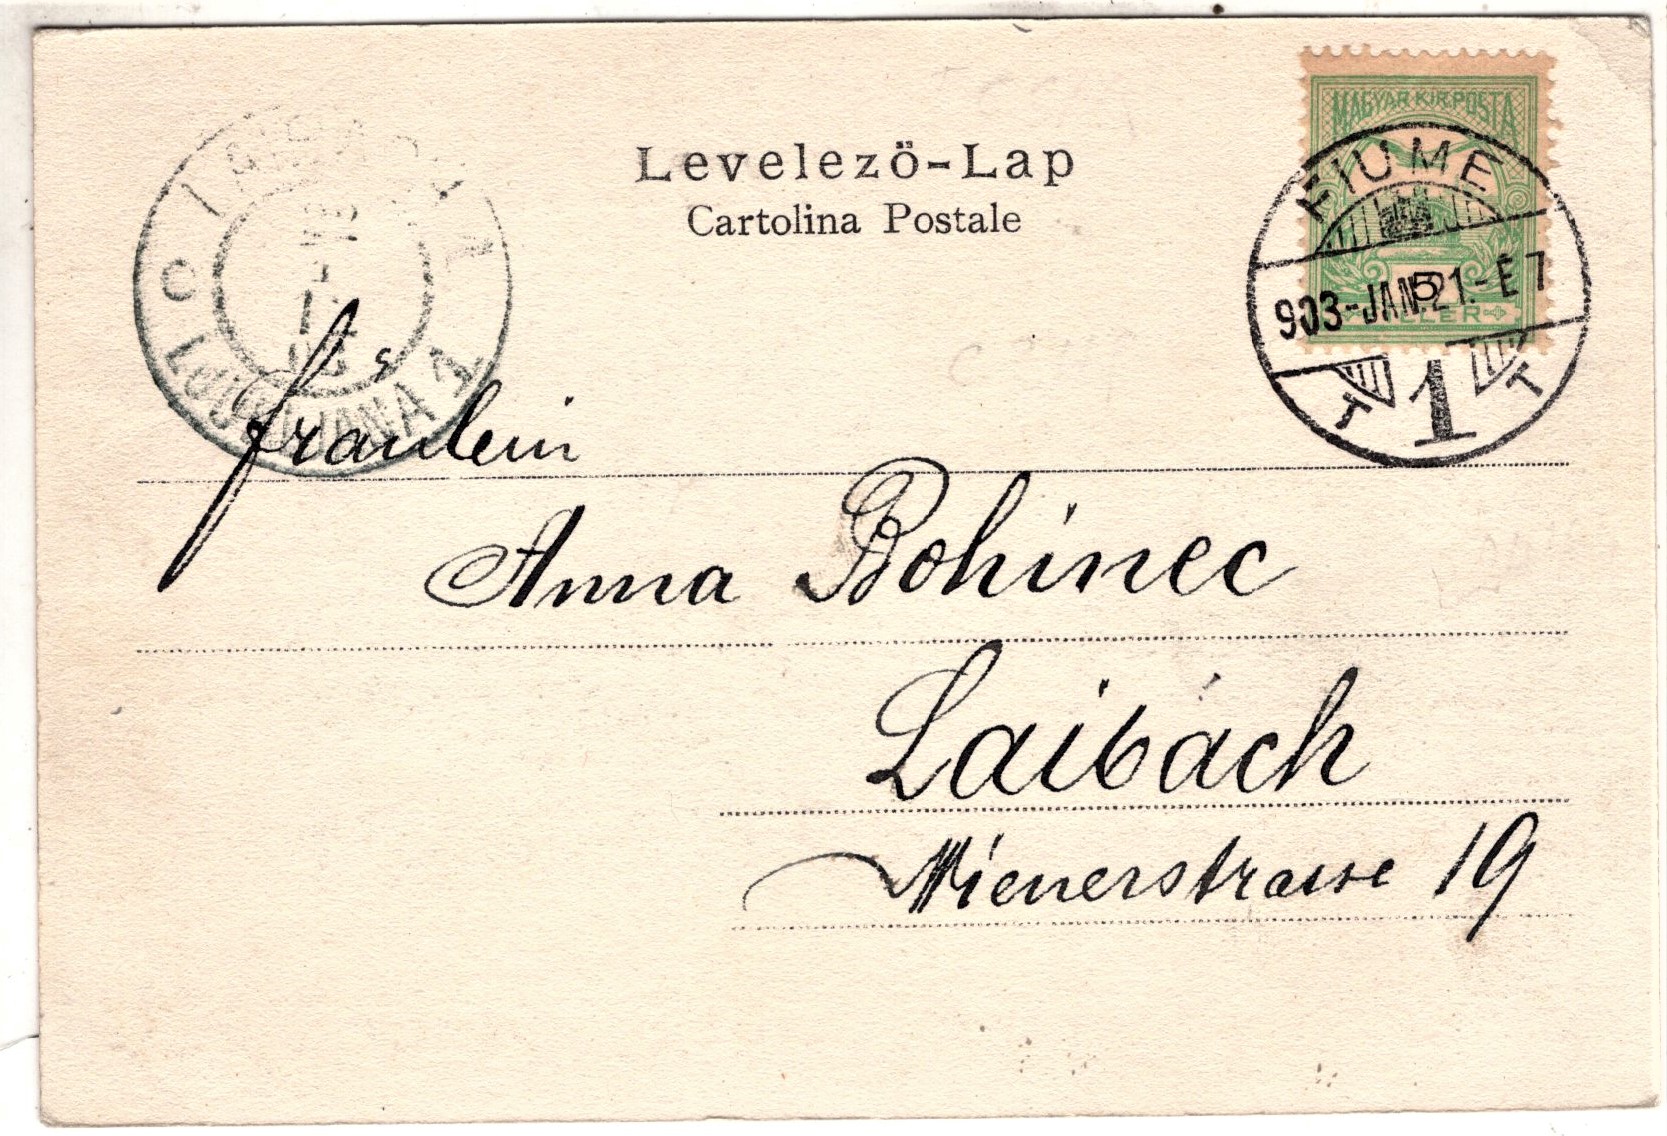 Levelező-Lap
Cartolina Postale
MAGYAR KIR. POSTA
5
FILLER
FIUME
903-JAN.21.-E7
T 1 T
LAIBACH 1
LJUBLJANA 1
fräulein
Anna Bohinec
Laibach
Wienerstrasse 19